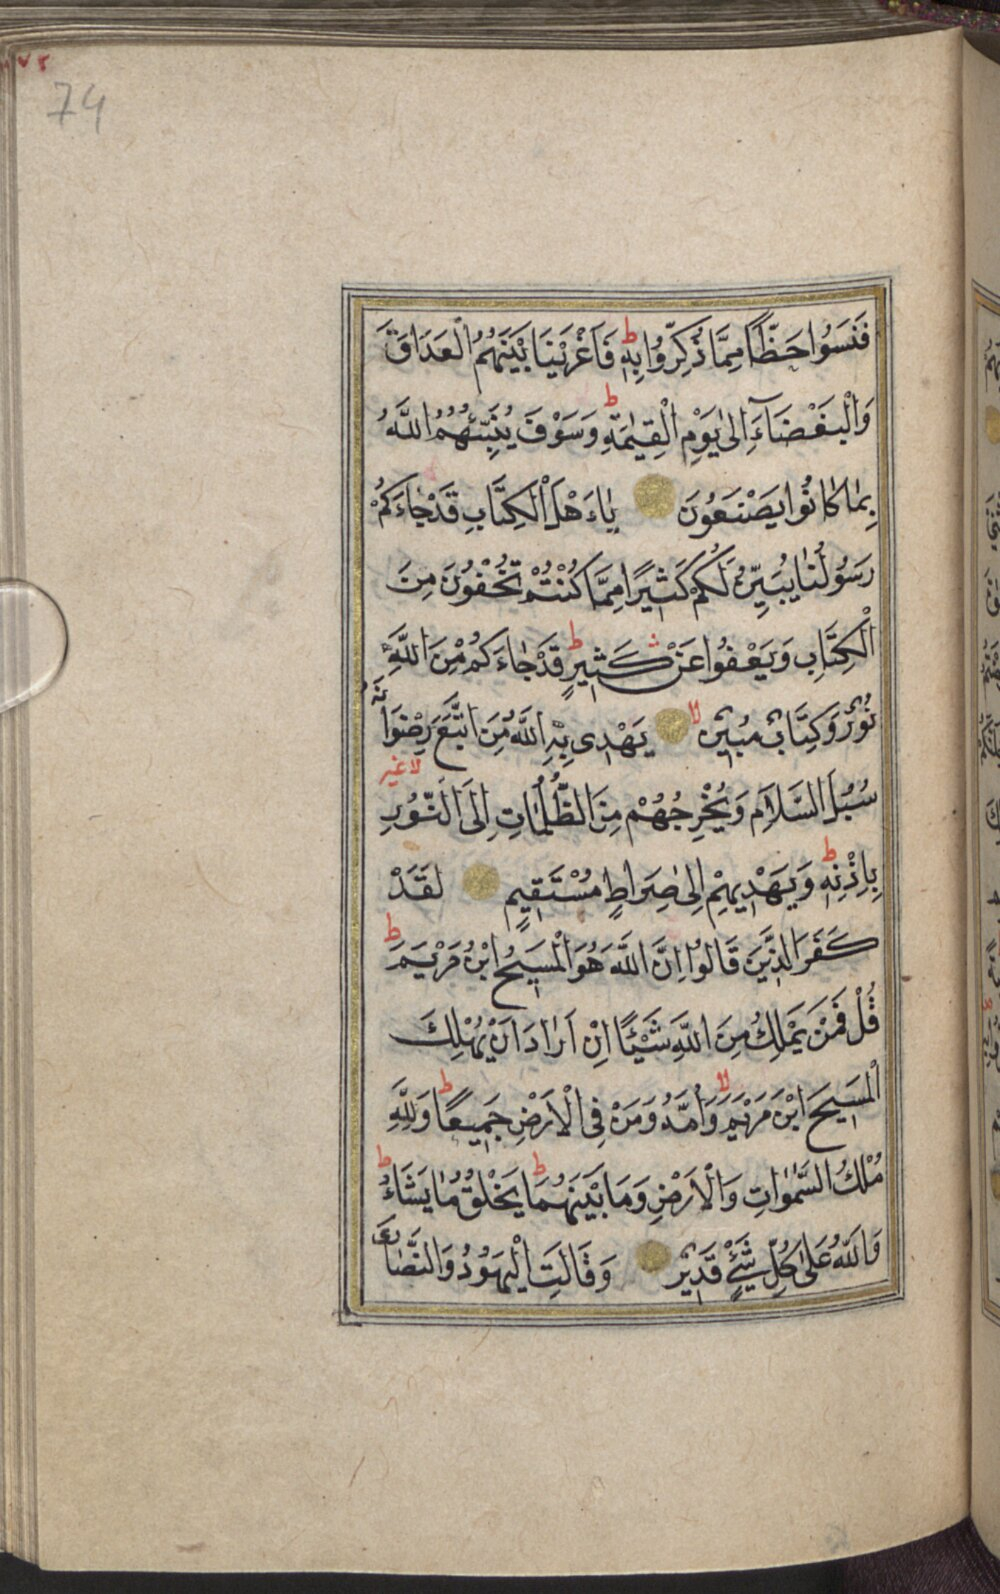 ٧٢
74
فَنَسُوا حَظًّا مِمَّا ذُكِّرُوا بِهِ ط فَاَغْرَيْنَا بَيْنَهُمُ الْعَدَاوَةَ
وَالْبَغْضَآءَ اِلٰى يَوْمِ الْقِيٰمَةِ ط وَسَوْفَ يُنَبِّئُهُمُ اللَّهُ
بِمَا كَانُوا يَصْنَعُونَ يٰاءَهْلَ الْكِتَابِ قَدْ جَاءَكُمْ
رَسُولُنَا يُبَيِّنُ لَكُمْ كَثِيرًا مِمَّا كُنْتُمْ تُخْفُونَ مِنَ
الْكِتَابِ وَيَعْفُوا عَنْ كَثِيرٍ ط قَدْ جَاءَكُمْ مِنَ اللَّهِ
نُورٌ وَكِتَابٌ مُبِينٌ لا يَهْدِى بِهِ اللَّهُ مَنِ اتَّبَعَ رِضْوَانَهُ
لا غير
سُبُلَ السَّلَامِ وَيُخْرِجُهُمْ مِنَ الظُّلُمَاتِ اِلَى النُّورِ
بِاِذْنِهِ ط وَيَهْدِيهِمْ اِلٰى صِرَاطٍ مُسْتَقِيمٍ لَقَدْ
كَفَرَ الَّذِينَ قَالُوا اِنَّ اللَّهَ هُوَ الْمَسِيحُ ابْنُ مَرْيَمَ ط
قُلْ فَمَنْ يَمْلِكُ مِنَ اللَّهِ شَيْئًا اِنْ اَرَادَ اَنْ يُهْلِكَ
الْمَسِيحَ ابْنَ مَرْيَمَ لا وَاُمَّهُ وَمَنْ فِى الْاَرْضِ جَمِيعًا ط وَلِلَّهِ
مُلْكُ السَّمٰوَاتِ وَالْاَرْضِ وَمَا بَيْنَهُمَا ط يَخْلُقُ مَا يَشَاءُ ط
وَاللَّهُ عَلٰى كُلِّ شَيْءٍ قَدِيرٌ وَقَالَتِ الْيَهُودُ وَالنَّصَارَى